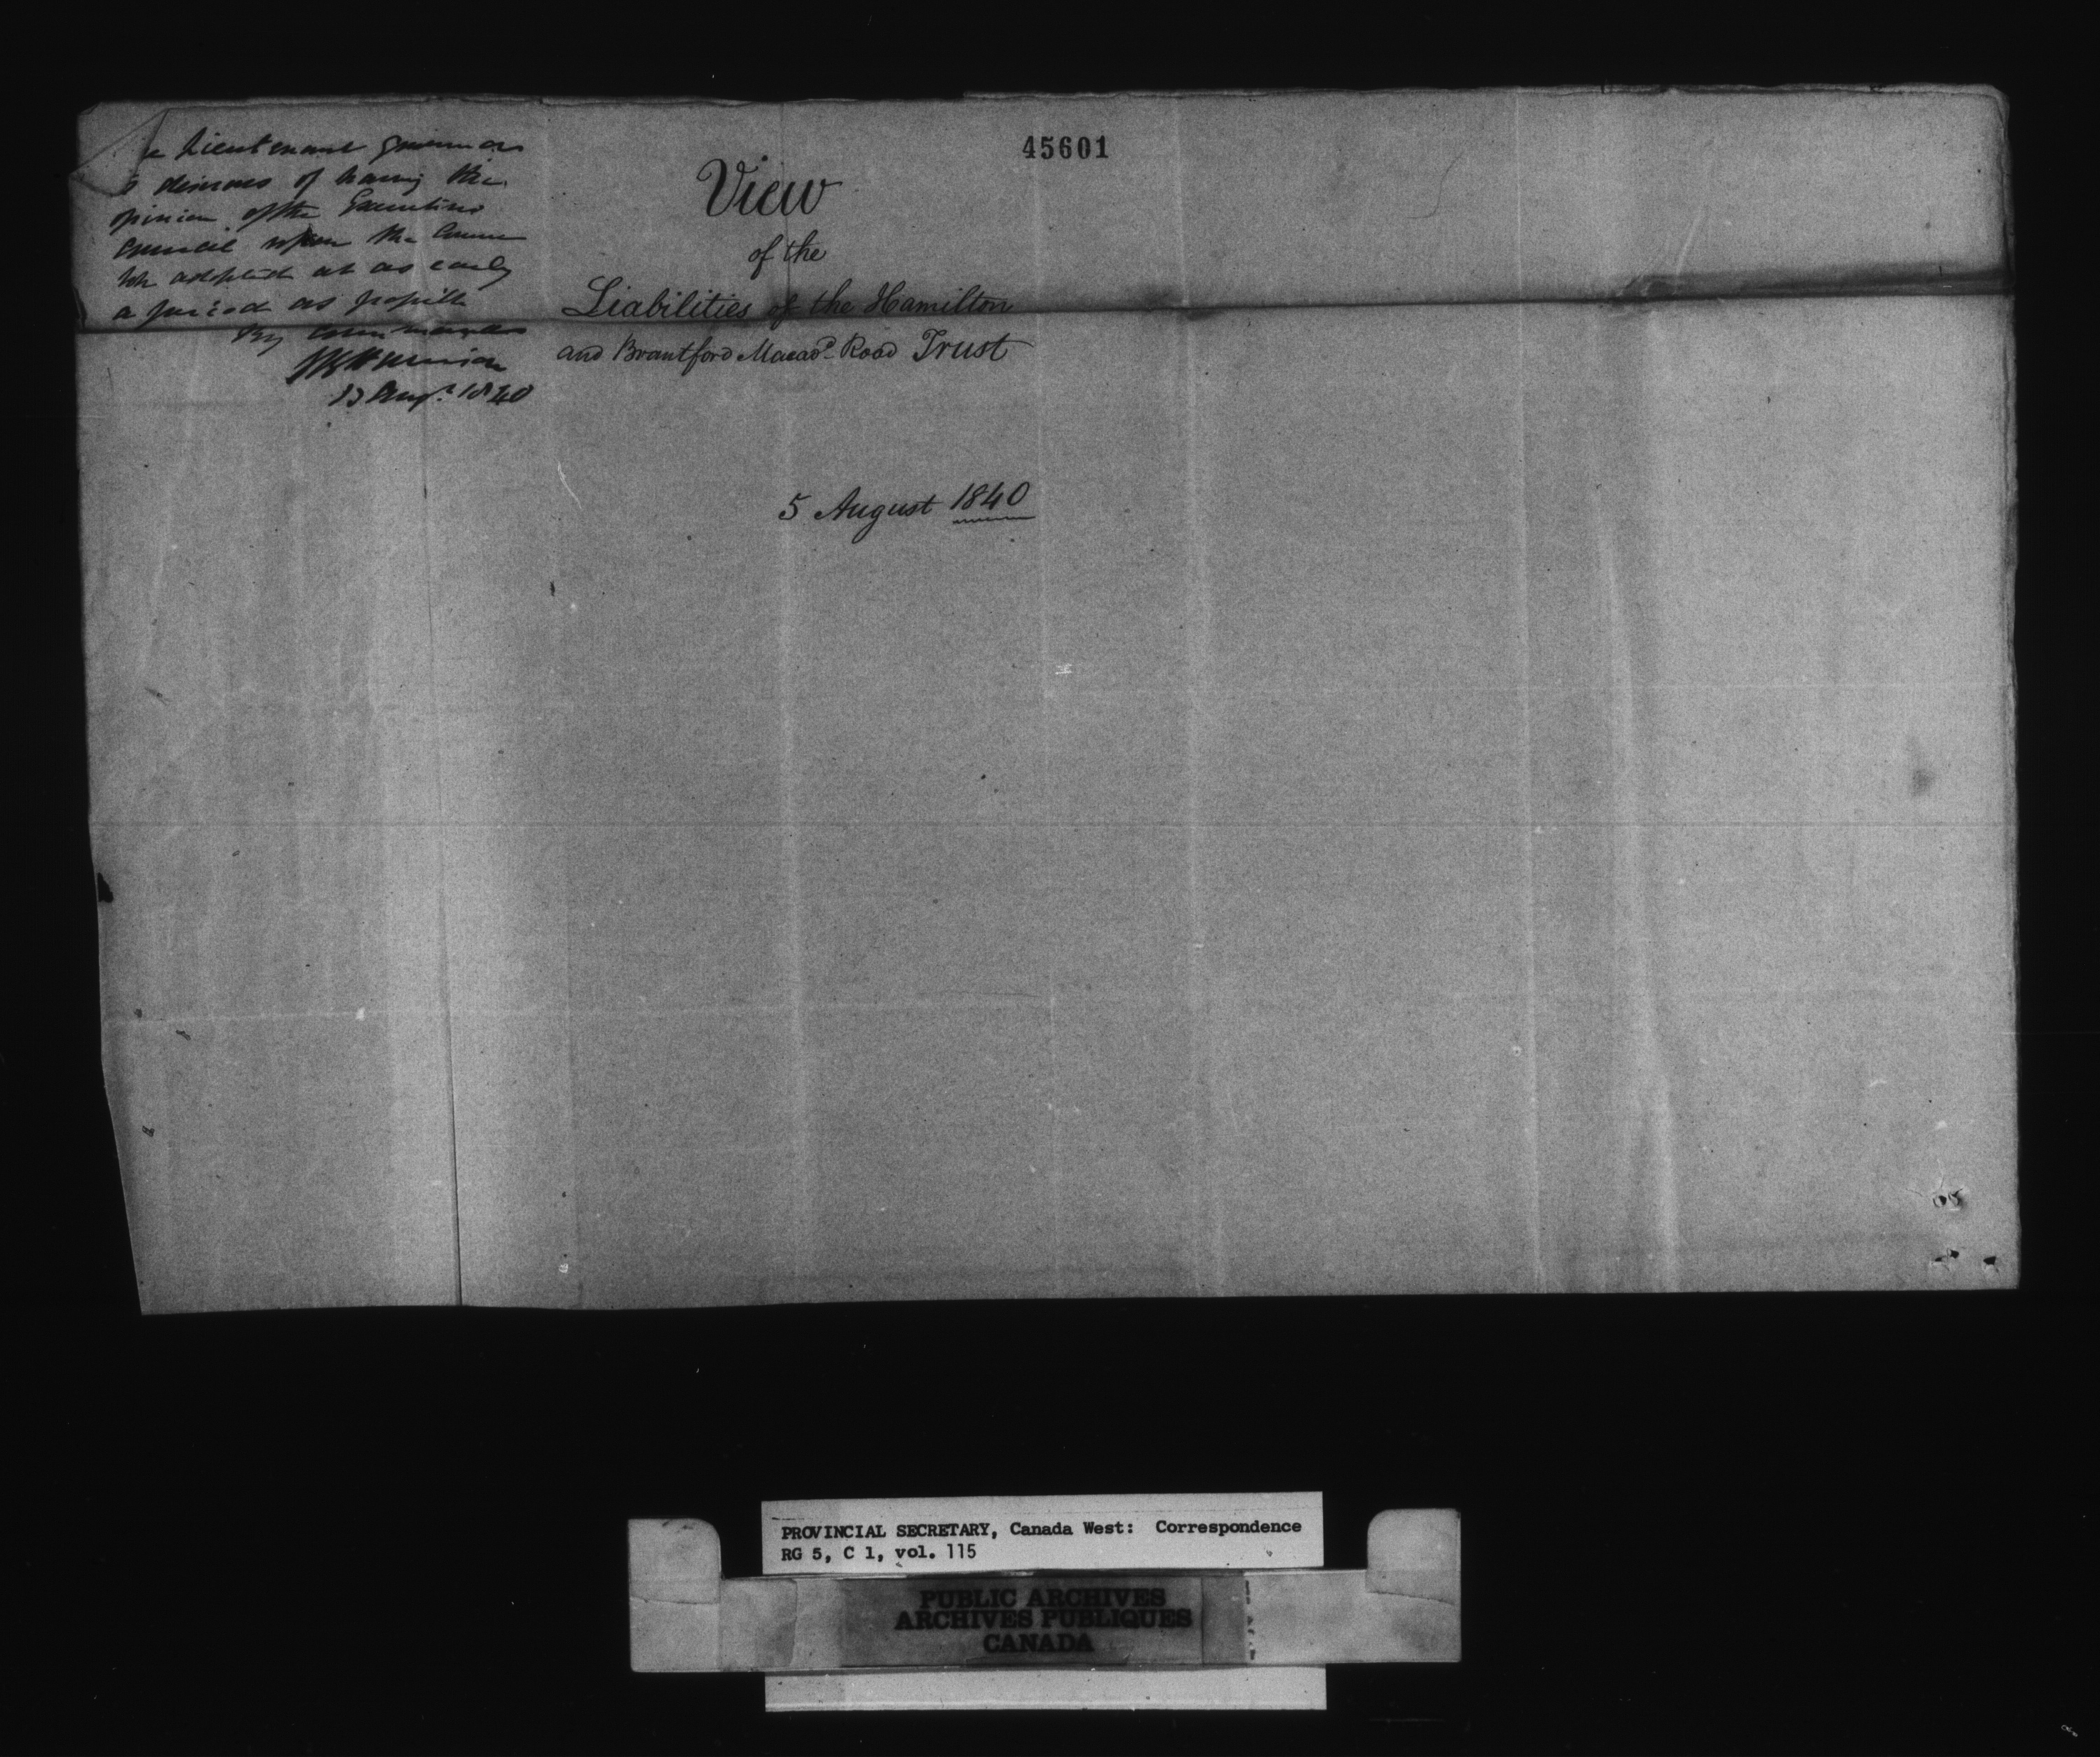 e Lieutenant Governor
is desirous of having the
opinion of the Executive
Council upon the Course
to be adopted at as early
a period as possible
By Command
13 Augt. 1840
45601
View
of the
Liabilities of the Hamilton
and Brantford Macadd. Road Trust
5 August 1840
PROVINCIAL SECRETARY, Canada West: Correspondence
RG 5, C 1, vol. 115
PUBLIC ARCHIVES
ARCHIVES PUBLIQUES
CANADA